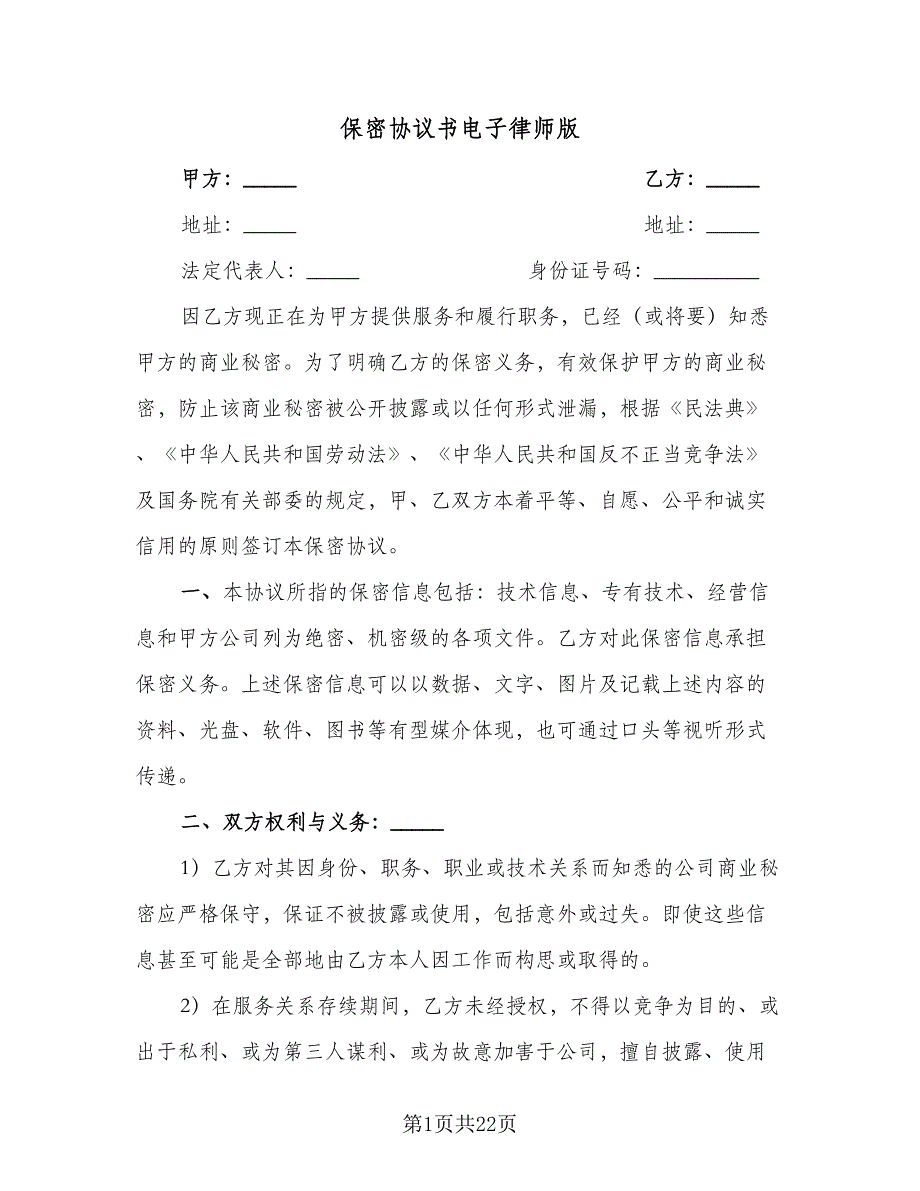 保密协议书电子律师版
甲方：_____ 乙方：_____
地址：_____ 地址：_____
法定代表人：_____ 身份证号码：__________
因乙方现正在为甲方提供服务和履行职务，已经（或将要）知悉
甲方的商业秘密。为了明确乙方的保密义务，有效保护甲方的商业秘
密，防止该商业秘密被公开披露或以任何形式泄漏，根据《民法典》
、《中华人民共和国劳动法》、《中华人民共和国反不正当竞争法》
及国务院有关部委的规定，甲、乙双方本着平等、自愿、公平和诚实
信用的原则签订本保密协议。
一、本协议所指的保密信息包括：技术信息、专有技术、经营信
息和甲方公司列为绝密、机密级的各项文件。乙方对此保密信息承担
保密义务。上述保密信息可以以数据、文字、图片及记载上述内容的
资料、光盘、软件、图书等有型媒介体现，也可通过口头等视听形式
传递。
二、双方权利与义务：_____
1）乙方对其因身份、职务、职业或技术关系而知悉的公司商业秘
密应严格保守，保证不被披露或使用，包括意外或过失。即使这些信
息甚至可能是全部地由乙方本人因工作而构思或取得的。
2）在服务关系存续期间，乙方未经授权，不得以竞争为目的、或
出于私利、或为第三人谋利、或为故意加害于公司，擅自披露、使用
第1页共22页